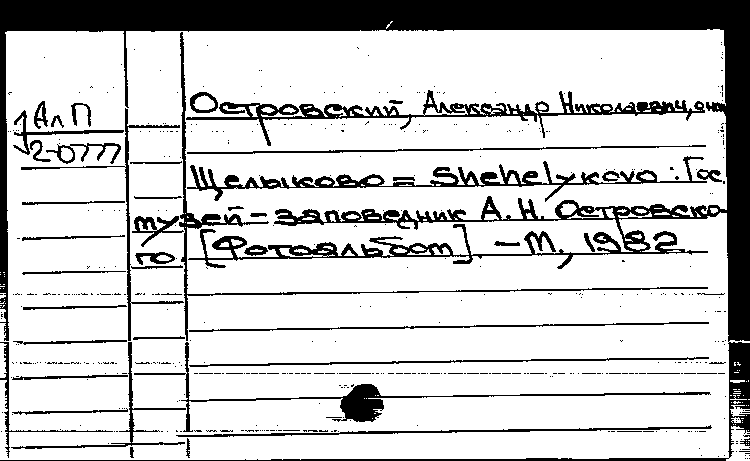 АлП
Островский, Александр Николаевич,
√2-0777
Щелыково = Shehelykovo : Гос.
музей-заповедник А.Н. Островско-
го. [Фотоальбом]. - М., 1982.